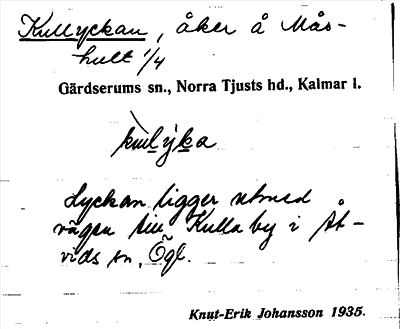 Kullyckan, åker å Mås-
hult 1/4
Gärdserums sn., Norra Tjusts hd., Kalmar l.
Lyckan ligger utmed
vägen till Kulla by i Åt-
vids sn, Ögl.
Knut-Erik Johansson 1935.